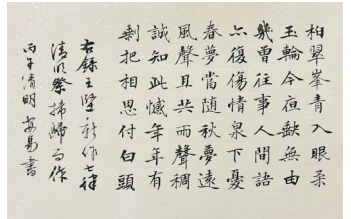 柏翠峯青入眼柔
玉輪今缺無由
幾曾往事人間語
亦復傷情泉下憂
春夢當隨秋夢遠
風聲且共雨聲稠
誠知此憾年年有
剩把相思付白頭
右錄王堅新作七律
清明祭掃歸而作
丙午清明 安易書